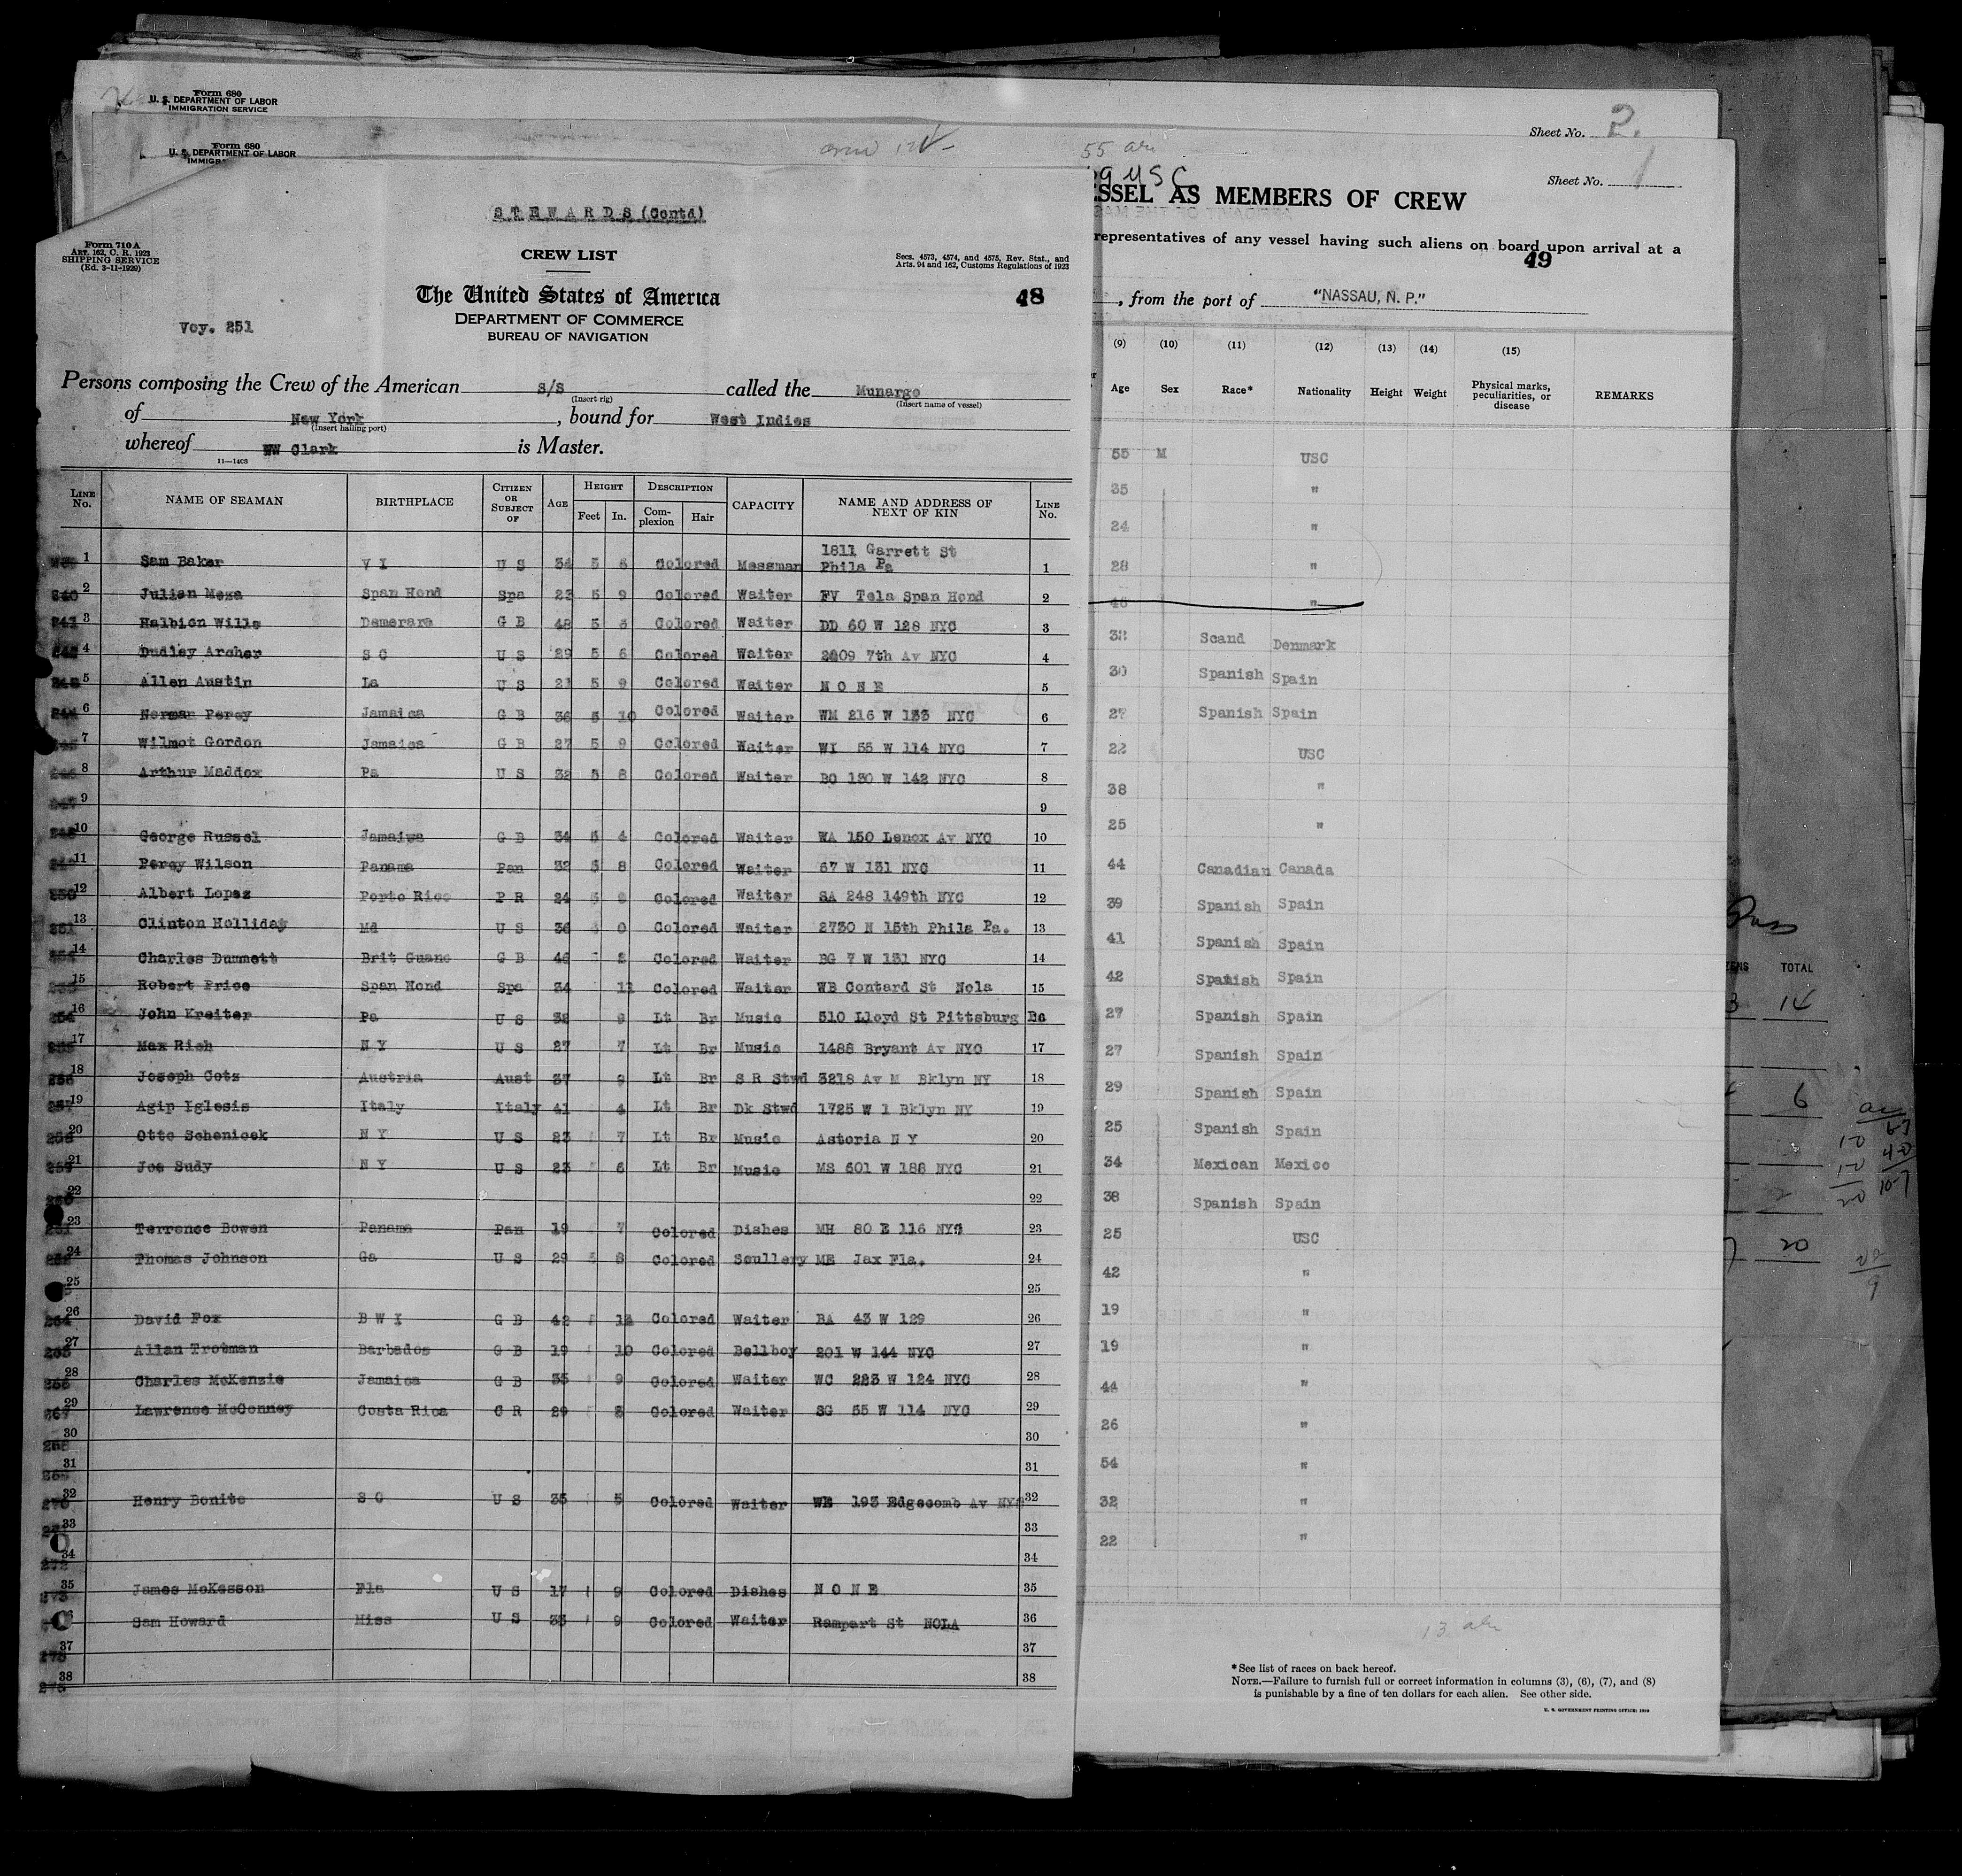 Form 680
U. S. DEPARTMENT OF LABOR
IMMIGRATION SERVICE
Sheet No. 2.
Form 680
U. S. DEPARTMENT OF LABOR
IMMIGR
55
Sheet No. 1
9 USC
STEWARDS (Contd)
Form 710 A
ART. 162, C. R. 1923
SHIPPING SERVICE
(Ed. 3-11-1929)
CREW LIST
Secs. 4573, 4574, and 4575, Rev. Stat., and
Arts. 94 and 162, Customs Regulations of 1923
The United States of America
48
DEPARTMENT OF COMMERCE
BUREAU OF NAVIGATION
Voy. 251
Persons composing the Crew of the American s/s called the Munargo
(Insert rig) (Insert name of vessel)
of New York, bound for West Indies
(Insert hailing port)
whereof WW Clark is Master.
LINE No. NAME OF SEAMAN BIRTHPLACE CITIZEN OR SUBJECT OF AGE HEIGHT Feet In. DESCRIPTION Complexion Hair CAPACITY NAME AND ADDRESS OF NEXT OF KIN LINE No.
1811 Garrett St
1 Sam Baker V I U S 34 5 Colored Messman Phila Pa 1
240 2 Julien Meza Span Hond Spa 23 5 9 Colored Waiter FV Tela Span Hond 2
241 3 Halbion Wills Demerara G B 48 5 Colored Waiter DD 60 W 128 NYC 3
4 Dudley Archer S C U S 29 5 6 Colored Waiter 2209 7th Av NYC 4
5 Allen Austin La U S 21 5 9 Colored Waiter N O N E 5
244 6 Norman Percy Jamaica G B 36 5 10 Colored Waiter WM 216 W 133 NYC 6
7 Wilmot Gordon Jamaica G B 27 5 9 Colored Waiter WI 55 W 114 NYC 7
8 Arthur Maddox Pa U S 32 5 8 Colored Waiter BO 130 W 142 NYC 8
247 9 9
10 George Russel Jamaica G B 34 5 4 Colored Waiter WA 150 Lenox Av NYC 10
11 Percy Wilson Panama Pan 32 5 8 Colored Waiter 67 W 131 NYC 11
250 12 Albert Lopez Porto Rico P R 24 5 Colored Waiter SA 248 149th NYC 12
251 13 Clinton Holliday Md U S 36 0 Colored Waiter 2730 N 15th Phila Pa. 13
14 Charles Dummett Brit Guano G B 46 2 Colored Waiter BG 7 W 131 NYC 14
15 Robert Price Span Hond Spa 34 11 Colored Waiter WB Contard St Nola 15
254 16 John Kreiter Pa U S 38 9 Lt Br Music 510 Lloyd St Pittsburg Pa
17 Max Rich N Y U S 27 7 Lt Br Music 1488 Bryant Av NYC 17
18 Joseph Gotz Austria Aust 37 9 Lt Br S R Stwd 3218 Av M Bklyn NY 18
257 19 Agip Iglesis Italy Italy 41 4 Lt Br Dk Stwd 1725 W 1 Bklyn NY 19
258 20 Otto Schenicek N Y U S 23 7 Lt Br Music Astoria N Y 20
259 21 Joe Sudy N Y U S 23 6 Lt Br Music MS 601 W 188 NYC 21
22 22
23 Terrence Bowen Panama Pan 19 7 Colored Dishes MH 80 E 116 NYC 23
24 Thomas Johnson Ga U S 29 5 8 Colored Scullery ME Jax Fla. 24
25 25
264 26 David Fox B W I G B 42 Colored Waiter BA 43 W 129 26
265 27 Allan Trotman Barbados G B 19 10 Colored Bellboy 201 W 144 NYC 27
266 28 Charles McKenzie Jamaica G B 35 9 Colored Waiter WC 223 W 124 NYC 28
267 29 Lawrence McConney Costa Rica C R 29 8 Colored Waiter SG 55 W 114 NYC 29
268 30 30
269 31 31
270 32 Henry Bonito S C U S 35 5 Colored Waiter WE 193 Edgecomb Av NYC 32
33 33
272 34 34
273 35 James McKesson Fla U S 17 9 Colored Dishes N O N E 35
Sam Howard Miss U S 33 9 Colored Waiter Rampart St NOLA 36
275 37 37
38 38
SSEL AS MEMBERS OF CREW
representatives of any vessel having such aliens on board upon arrival at a
49
, from the port of "NASSAU, N. P."
(9) (10) (11) (12) (13) (14) (15)
Age Sex Race* Nationality Height Weight Physical marks, peculiarities, or disease REMARKS
55 M USC
35 "
24 "
28 "
48 "
38 Scand Denmark
30 Spanish Spain
27 Spanish Spain
22 USC
38 "
25 "
44 Canadian Canada
39 Spanish Spain
41 Spanish Spain
42 Spanish Spain
27 Spanish Spain
27 Spanish Spain
29 Spanish Spain
25 Spanish Spain
34 Mexican Mexico
38 Spanish Spain
25 USC
42 "
19 "
19 "
44 "
26 "
54 "
32 "
22 "
13
*See list of races on back hereof.
NOTE.—Failure to furnish full or correct information in columns (3), (6), (7), and (8)
is punishable by a fine of ten dollars for each alien. See other side.
U. S. GOVERNMENT PRINTING OFFICE: 1929
TOTAL
3 14
6
2
20